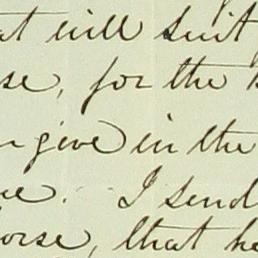 at will suit
se, for the
give in the
ue. I send
orse, that he